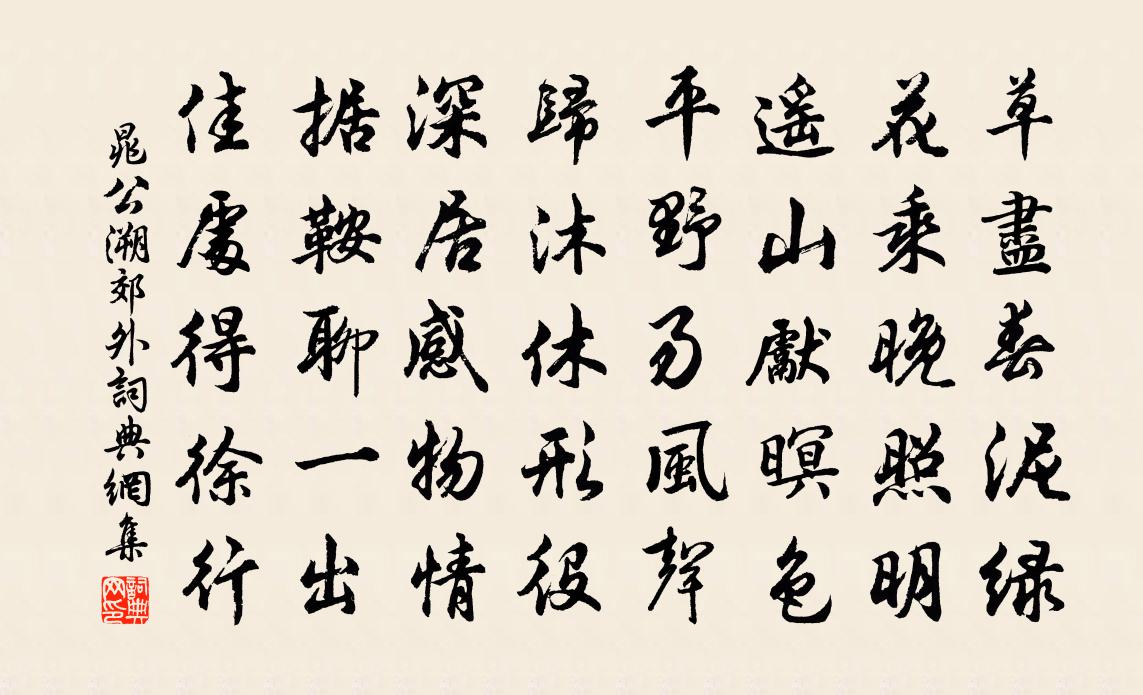 草盡春泥綠
花乘晚照明
遥山獻暝色
平野易風聲
歸沐休形役
深居感物情
据鞍聊一出
佳處得徐行
晁公溯郊外詞典網集
詞典网印